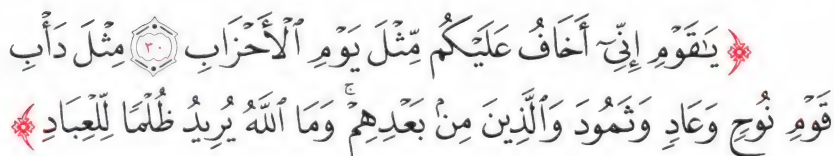 ﴿ يَٰقَوْمِ إِنِّيٓ أَخَافُ عَلَيْكُم مِّثْلَ يَوْمِ ٱلْأَحْزَابِ ٣٠ مِثْلَ دَأْبِ
قَوْمِ نُوحٍ وَعَادٍ وَثَمُودَ وَٱلَّذِينَ مِنۢ بَعْدِهِمْۚ وَمَا ٱللَّهُ يُرِيدُ ظُلْمًا لِّلْعِبَادِ ﴾